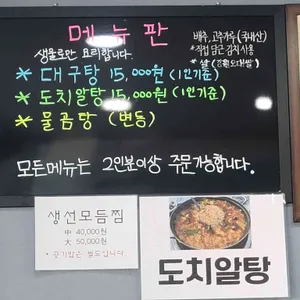 메뉴판
생물로만 요리합니다.
배추, 고추가루 (국내산)
* 직접 담근 김치 사용
* 쌀 (강원오대쌀)
* 대구탕 15,000원 (1인기준)
* 도치알탕 15,000원 (1인기준)
* 물곰탕 (변동)
모든메뉴는 2인분이상 주문가능합니다.
생선모듬찜
中 40,000원
大 50,000원
* 공기밥은 별도입니다 *
도치알탕